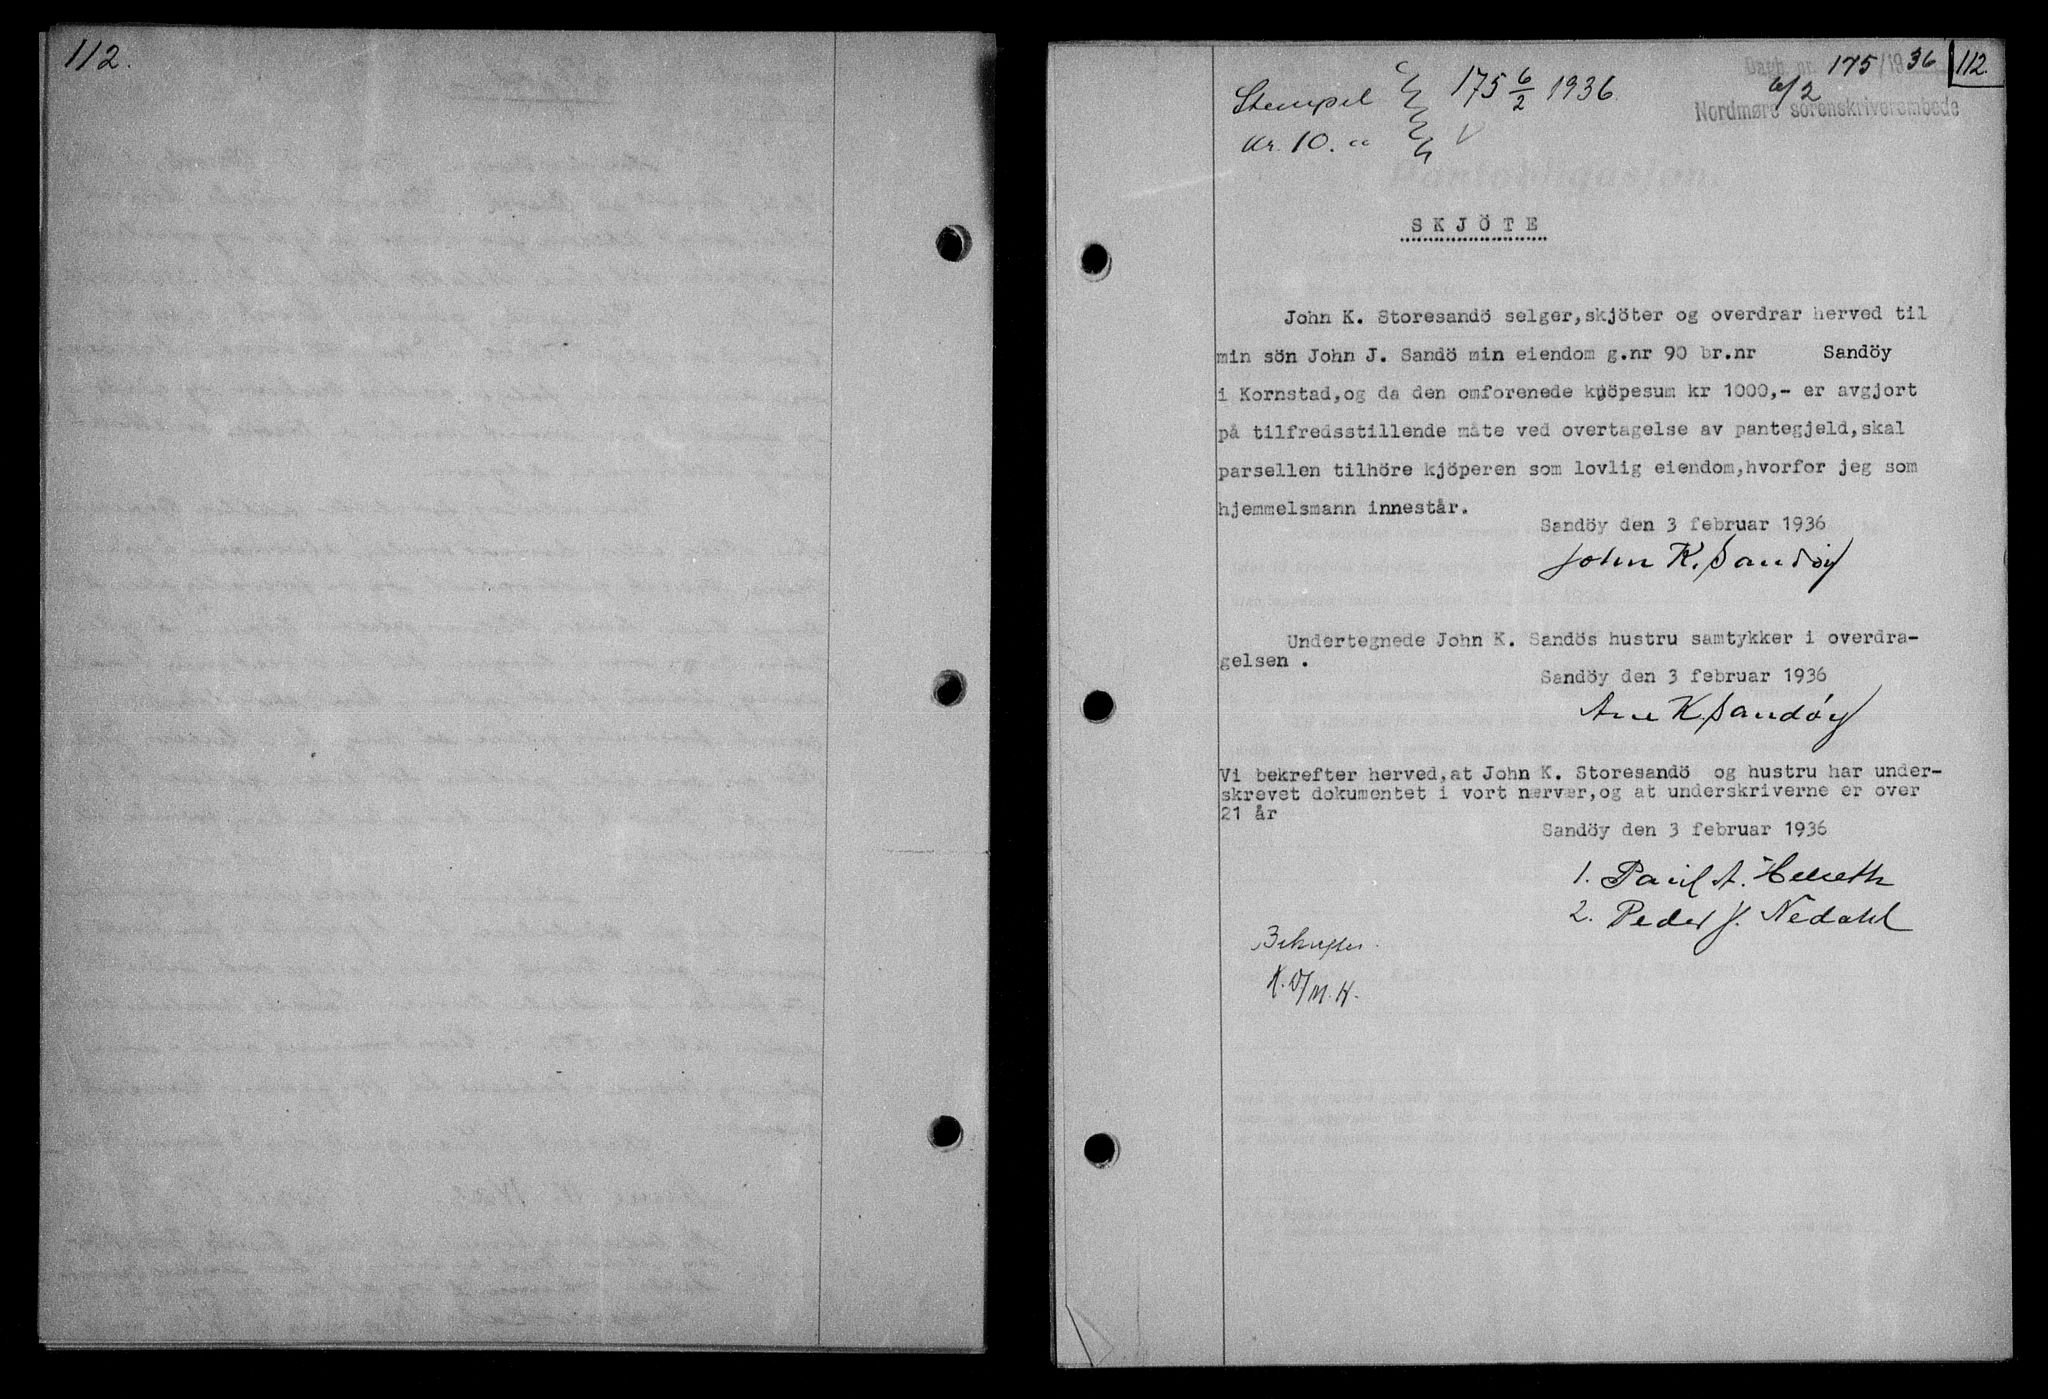 112.
Dagb. nr. 175/1936
112.
6/2
Nordmøre sorenskriverembede
Stempel
175 6/2 1936.
Kr. 10.
SKJÖTE
John K. Storesandö selger,skjöter og overdrar herved til
min sön John J. Sandö min eiendom g.nr 90 br.nr Sandöy
i Kornstad,og da den omforenede kjöpesum kr 1000,- er avgjort
på tilfredsstillende måte ved overtagelse av pantegjeld,skal
parsellen tilhöre kjöperen som lovlig eiendom,hvorfor jeg som
hjemmelsmann innestår.
Sandöy den 3 februar 1936
John K. Sandöy
Undertegnede John K. Sandös hustru samtykker i overdra-
gelsen .
Sandöy den 3 februar 1936
Ane K. Sandøy
Vi bekrefter herved,at John K. Storesandö og hustru har under-
skrevet dokumentet i vort nærvær,og at underskriverne er over
21 år
Sandöy den 3 februar 1936
1. Paul A. Helseth
2. Peder J. Nedahl
Bekreftes.